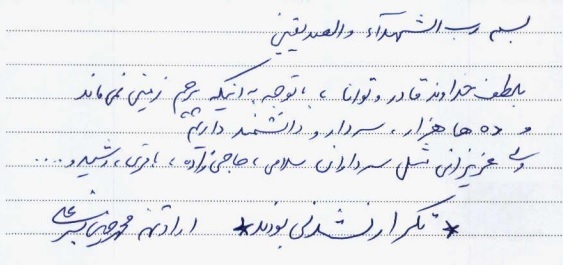 بسم رب الشهدآء والصدیقین
بلطف خداوند قادر و توانا ، با توجه به اینکه پرچم زمین نمی ماند
و ده ها هزار ، سردار و دانشمند داریم
ولی عزیزانی مثل سرداران سلامی ، حاجی زاده ، باقری ، رشید و ....
* تکرار نشدنی بودند * ارادتمند